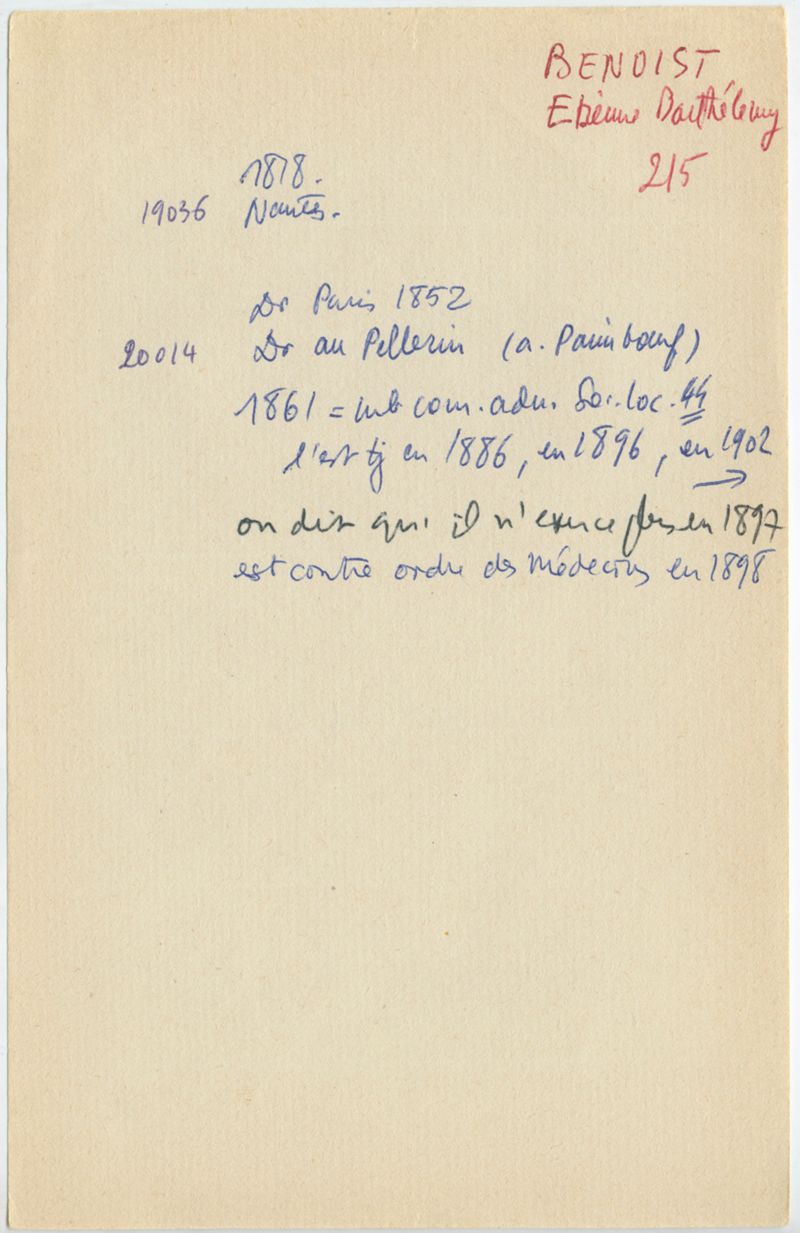 BENOIST
Etienne Barthélemy
215
1818.
19036 Nantes.
Dr Paris 1852
20014 Dr au Pellerin (a. Paimboeuf)
1861 = mb com. adm. Soc. loc. 44
l'est tj en 1886, en 1896, en 1902
→
on dit qu'il n'exerce plus en 1897
est contre ordre des Médecins en 1898